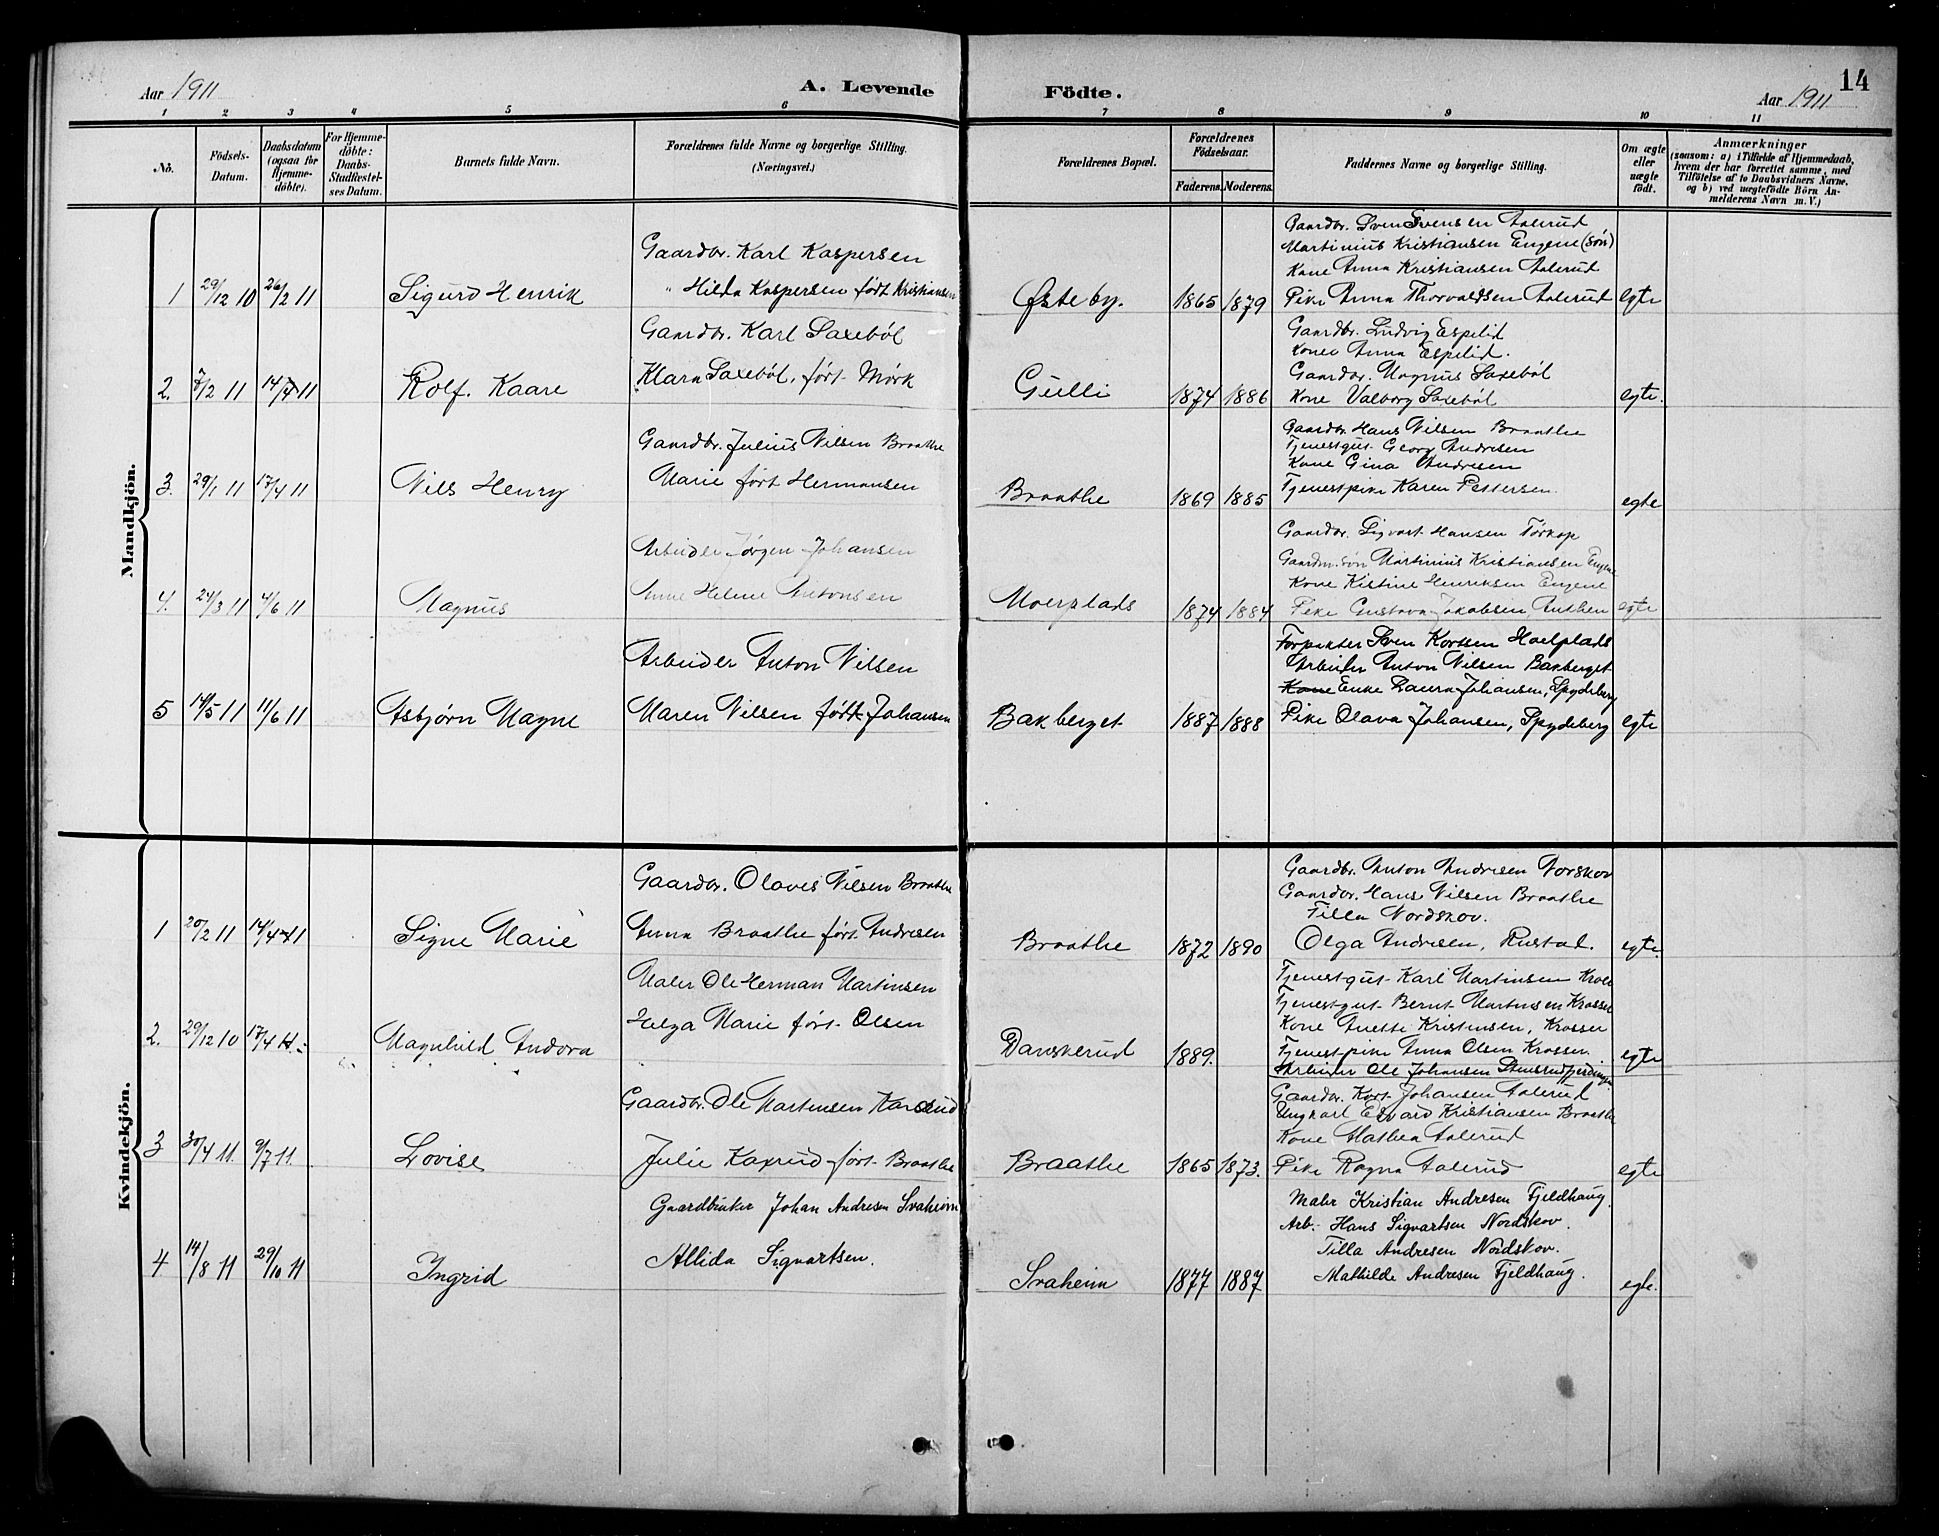 Aar 1911
A. Levende
Födte.
14
Aar 1911
1 2 3 4 5 6 7 8 9 10 11
No.
Födsels-Datum.
Daabsdatum (ogsaa for Hjemme-döbte).
For Hjemme-döbte: Daabs-Stadfæstel-ses Datum.
Barnets fulde Navn.
Forældrenes fulde Navne og borgerlige Stilling. (Næringsvei.)
Forældrenes Bopæl.
Forældrenes Födselsaar.
Faderens. Moderens.
Faddernes Navne og borgerlige Stilling.
Om ægte eller uægte födt.
Anmærkninger
(saasom: a) i Tilfælde af Hjemmedaab, hvem der har forrettet samme, med Tilföielse af to Daabsvidners Navne, og b) ved uægtefödte Börn An-melderens Navn m. V.)
Mandkjön.
Gaardbr. Karl Kaspersen
Gaardbr. Sven Svensen Aalerud
Martinius Kristiansen Eugene (søn)
Kone Anna Kristiansen Aalerud
1 29/12 10 26/2 11 Sigurd Henrik " Hilda Kaspersen født Kristiansen Østeby. 1865 1879 Pike Anna Thorvaldsen Aalerud egte
Gaardbr. Karl Saxebøl
Gaardbr. Ludvig Espelid
Kone Anna Espelid.
Gaardbr. Magnus Saxebøl
2. 7/2 11 14/4 11 Rolf. Kaare Klara Saxebøl, født Mørk Gulli 1874 1886 Kone Valborg Saxebøl egte.
Gaardbr. Julius Nilsen Braathe
Gaardbr. Hans Nilsen Braathe
Tjenestgut Georg Andresen
Kone Gina Andresen
3. 29/1 11 17/4 11 Nils Henry Marie født Hermansen Braathe 1869 1885 Tjenestpike Karen Pettersen. egte
Arbeider Jørgen Johansen
Gaardbr. Sigvart Hansen Tørkop
Gaardm. søn Martinius Kristiansen Eugene
Kone Kistine Henriksen Eugene
4. 24/3 11 4/6 11 Magnus Anne Helene Antonsen Moerplads 1874 1884 Pike Gustava Jakobsen egte
Arbeider Anton Nilsen
Forpakter Sven Kortsen
Arbeider Anton Nilsen Bakberget
Kone Enke Laura Johansen, Spydeberg
5 14/5 11 11/6 11 Asbjørn Magne Maren Nilsen født Johansen Bakberget 1887 1888 Pike Olava Johansen, Spydeberg egte
Kvindekjön.
Gaardbr. Olaves Nilsen Braathe
Gaardbr. Anton Andresen Norskov
Gaardbr. Hans Nilsen Braathe
Tilla Nordskov.
1 20/2 11 14/4 11 Signe Marie Anna Braathe født Andresen Braathe 1872 1890 Olga Andresen, Rustad. egte.
Maler Ole Herman Martinsen
Tjenestgut Karl Martinsen
Tjenestgut Bernt Martinsen Krosser
Helga Marie født Olsen
Kone Anette Kristensen, Krosser
2. 29/12 10 17/4 11. Magnhild Andora Danskerud 1889. Tjenestpike Anna Olsen Krosser. egte
Arbeider Ole Johansen
Gaardbr. Ole Martinsen Karlsrud
Gaardbr. Kort Johansen Aalerud
Ungkarl Edvard Kristiansen Braathe
Kone Mathea Aalerud
3 30/4 11 9/7 11. Lovise Julie født Braathe Braathe 1865 1873. Pike Ragna Aalerud egte
Gaardbruker Johan Andresen Svaheim
Maler Kristian Andresen Fjeldhaug.
Arb. Hans Sigvartsen Nordskov.
Tilla Andresen Nordskov.
4 14/8 11 29/10 11 Ingrid Allida Sigvartsen. Svaheim 1877 1887 Mathilde Andresen Fjeldhaug. egte.